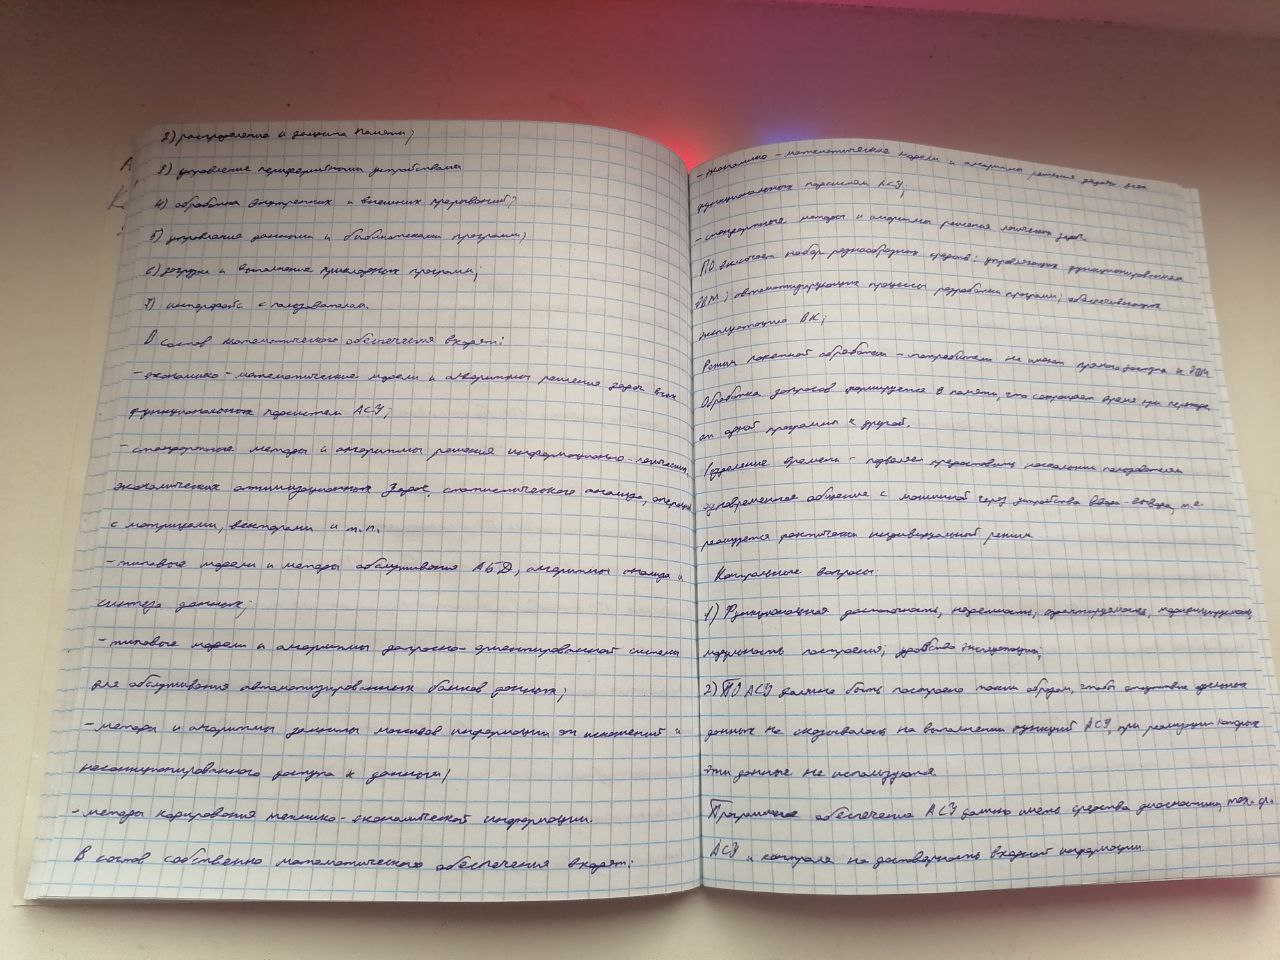 2) распределение и защита памяти;
3) управление периферийными устройствами
4) обработка внутренних и внешних прерываний;
5) управление данными и библиотеками программ;
6) загрузка и выполнение прикладных программ;
7) интерфейс с пользователем.
В состав математического обеспечения входят:
- экономико-математические модели и алгоритмы решения задач всех
функциональных подсистем АСУ;
- стандартные методы и алгоритмы решения информационно-логических,
экономических оптимизационных задач, статистического анализа, операций
с матрицами, векторами и т.п.
- типовые модели и методы обслуживания АБД, алгоритмы анализа и
синтеза данных;
- типовые модели и алгоритмы запросно-ориентированной системы
для обслуживания автоматизированных банков данных;
- методы и алгоритмы защиты массивов информации от искажений и
несанкционированного доступа к данным;
- методы кодирования технико-экономической информации.
В состав собственно математического обеспечения входят:
- экономико-математические модели и алгоритмы решения задач всех
функциональных подсистем АСУ;
- стандартные методы и алгоритмы решения логических задач.
ПО включает набор разнообразных средств: управляющих функционированием
ЭВМ; автоматизирующих процессы разработки программ; обеспечивающих
эксплуатацию ВК;
Режим пакетной обработки - потребители не имеют прямого доступа к ЭВМ
Обработка запросов формируется в памяти, что сокращает время при переходе
от одной программы к другой.
Разделение времени - позволяет предоставить нескольким пользователям
одновременное общение с машиной через устройства ввода-вывода, т.е.
реализуется практически индивидуальный режим
Контрольные вопросы:
1) Функциональная достаточность, надежность, адаптируемость, модифицируемость,
модульность построения; удобство эксплуатации;
2) ПО АСУ должно быть построено таким образом, чтобы отсутствие отдельных
данных не сказывалось на выполнении функций АСУ, при реализации которых
эти данные не используются.
Программное обеспечение АСУ должно иметь средства диагностики тех. ср.
АСУ и контроля на достоверность входной информации